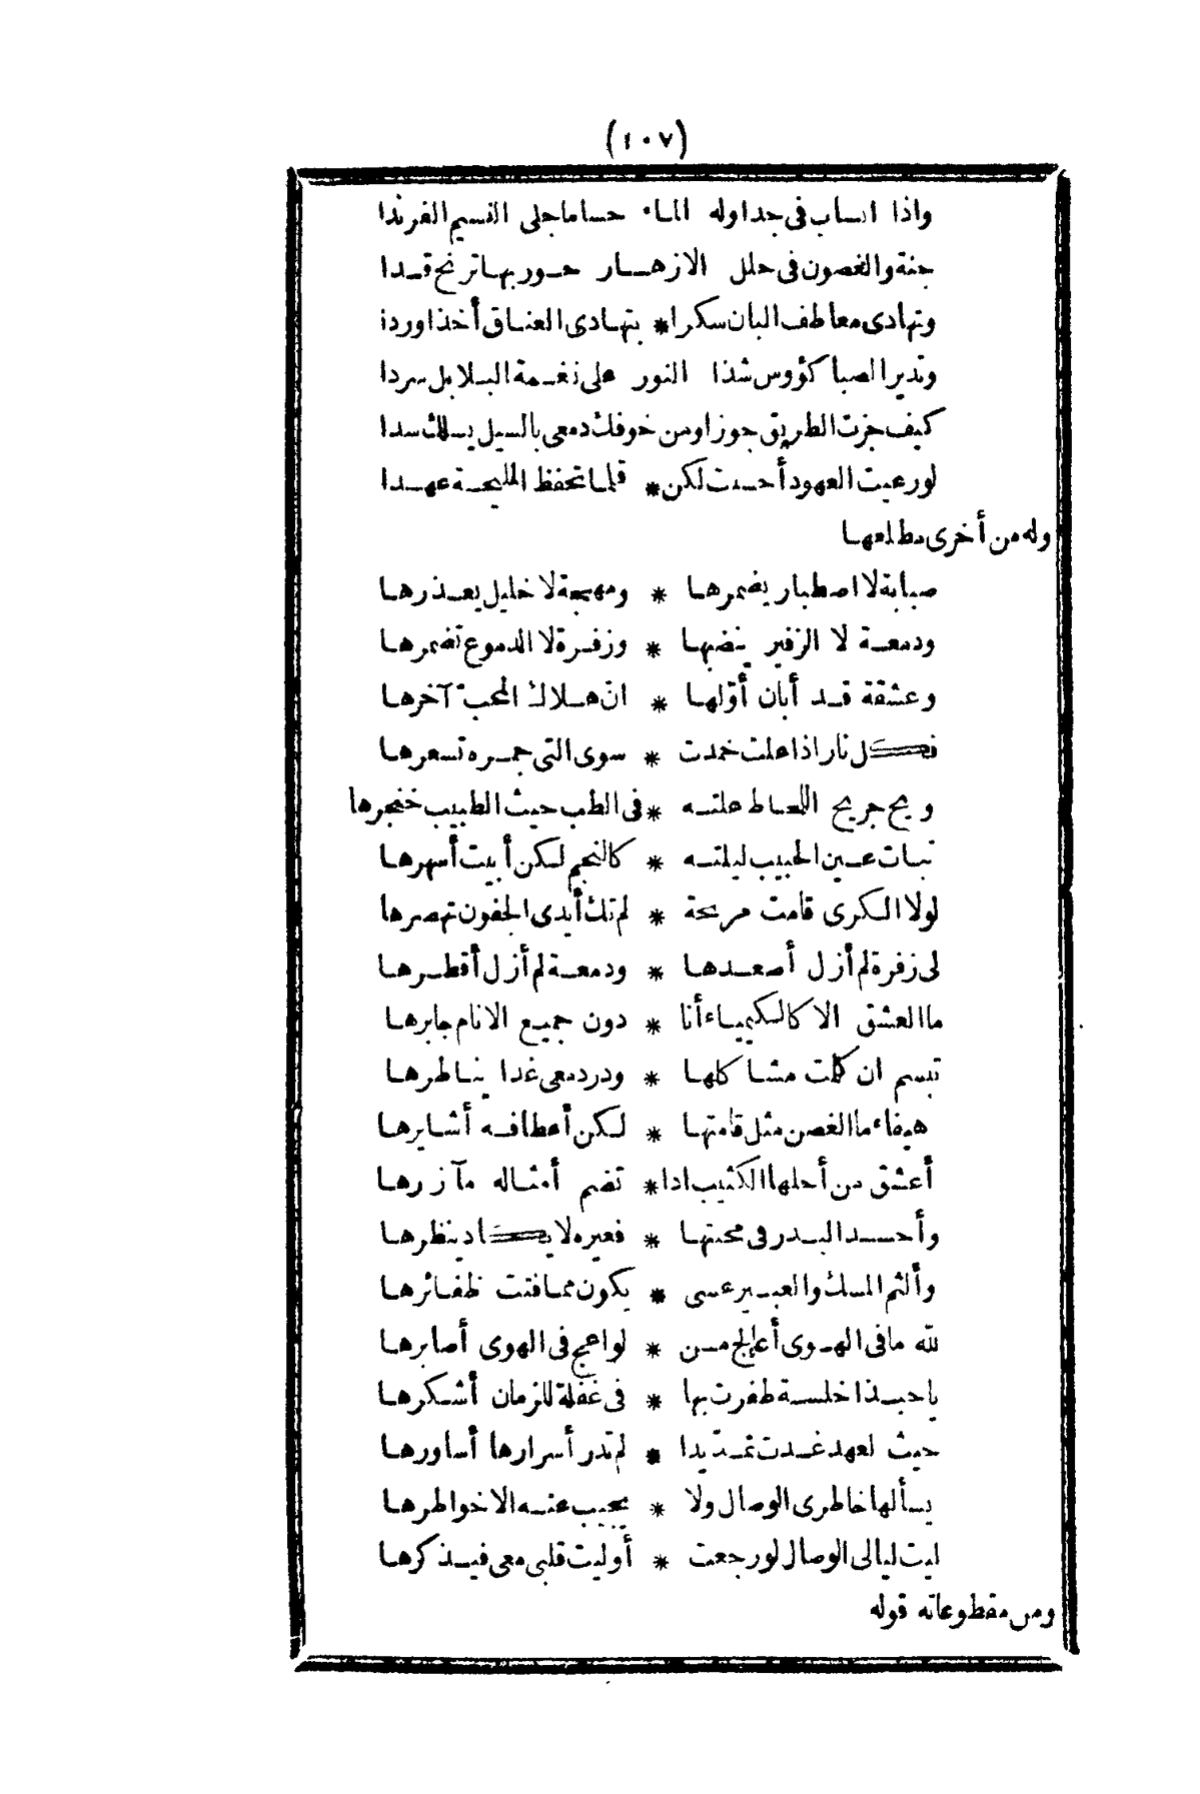 (١٠٧)
واذا انساب فى جداوله الماء حساما جلى النسيم الفرندا
جنة والغصون فى حلل الازهار حور بها ترنح قدا
وتهادى معاطف البان سكرا * بتهادى العناق أخذا وردا
وتدير الصبا كؤوس شذا النور على نغمة البلابل سردا
كيف جزت الطريق جوزا ومن خوفك دمعى بالسيل يسلك سدا
لو رعيت العهود أحسنت لكن * قلما تحفظ المليحة عهدا
وله من أخرى مطلعها
صبابة لا اصطبار يضمرها * ومهجة لا خليل يعذرها
ودمعة لا الزفير ينضبها * وزفرة لا الدموع تضمرها
وعشقة قد أبان أوّلها * انّ هلاك المحبّ آخرها
فكل نار اذا علت خمدت * سوى التى جمره تسعرها
ويح جريح اللحاظ علته * فى الطب حيث الطبيب خنجرها
تبات عين الحبيب ليلته * كالنجم لكن أبيت أسهرها
لولا الكرى قامت مرنحة * لم تك أيدى الجفون تهصرها
لى زفرة لم أزل أصعدها * ودمعة لم أزل أقطرها
ما العشق الا كالكيمياء أنا * دون جميع الانام جابرها
تبسم ان كلت مشاكلها * ودر دمعى غدا يناظرها
هيفاء ما الغصن مثل قامتها * لكن أعطافه أشايرها
أعشق من أجلها الكثيب اذا * تضم أمثاله مآزرها
وأحسد البدر فى محبتها * فغيره لا يكاد ينظرها
وألثم المسك والعبير عسى * يكون مما فتت ظفائرها
لله ما فى الهوى أعالج من * لواعج فى الهوى أصابرها
يا حبذا خلسة ظفرت بها * فى غفلة للزمان أشكرها
حيث لعهد غدت تمدّ يدا * لم تدر أسرارها أساورها
يسألها خاطرى الوصال ولا * يجيب عنه الا خواطرها
ليت ليالى الوصال لو رجعت * أوليت قلبى معى فيذكرها
ومن مقطوعاته قوله